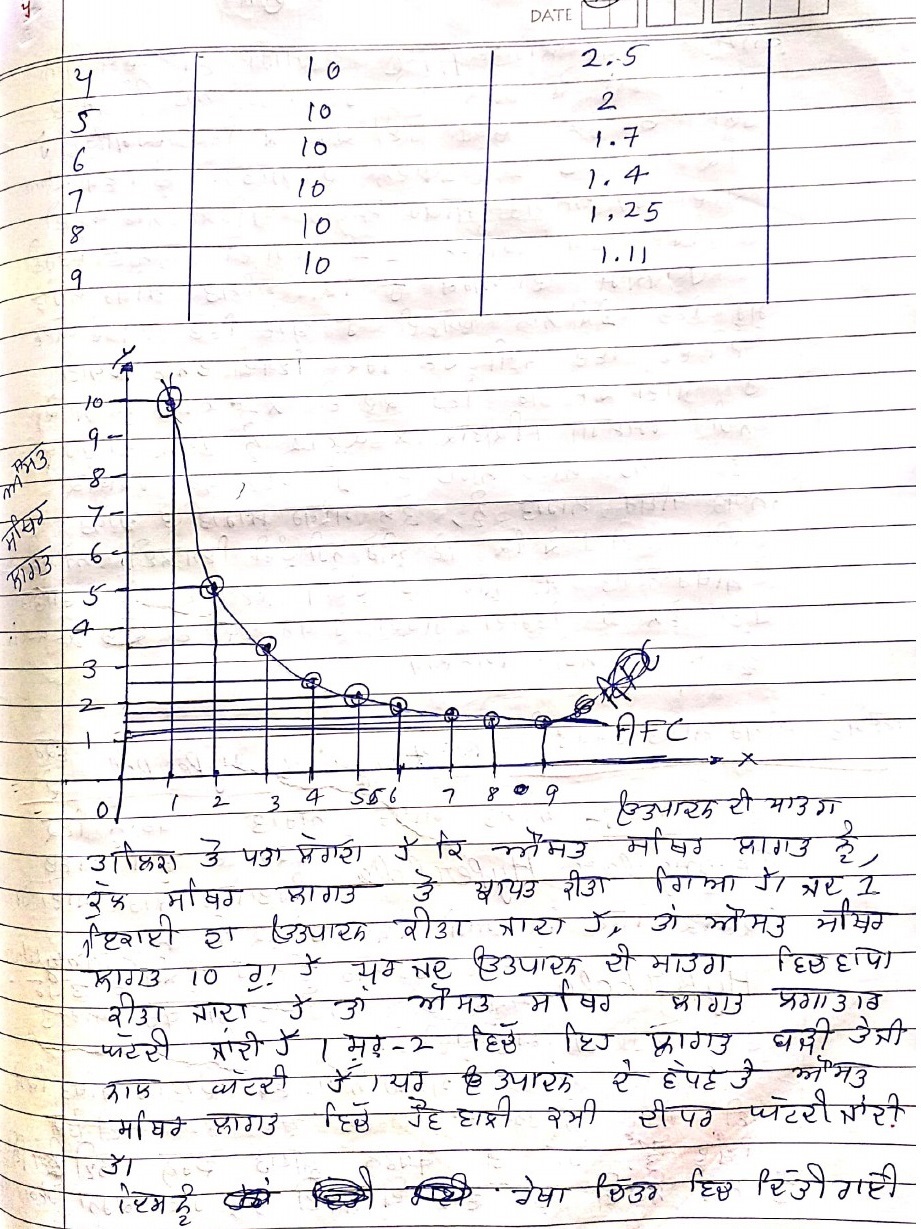 DATE
4 10 2.5
5 10 2
6 10 1.7
7 10 1.4
8 10 1.25
9 10 1.11
Y
10
9
8
7
6
5
4
3
2
1
ਔਸਤ
ਸਥਿਰ
ਲਾਗਤ
AFC
X
0 1 2 3 4 5 6 7 8 9
ਉਤਪਾਦਨ ਦੀ ਮਾਤਰਾ
ਤਾਲਿਕਾ ਤੋਂ ਪਤਾ ਲੱਗਦਾ ਹੈ ਕਿ ਔਸਤ ਸਥਿਰ ਲਾਗਤ ਨੂੰ,
ਕੁੱਲ ਸਥਿਰ ਲਾਗਤ ਤੋਂ ਪ੍ਰਾਪਤ ਕੀਤਾ ਗਿਆ ਹੈ। ਜਦ 1
ਇਕਾਈ ਦਾ ਉਤਪਾਦਨ ਕੀਤਾ ਜਾਂਦਾ ਹੈ, ਤਾਂ ਔਸਤ ਸਥਿਰ
ਲਾਗਤ 10 ਰੁ: ਹੈ ਪਰ ਜਦ ਉਤਪਾਦਨ ਦੀ ਮਾਤਰਾ ਵਿਚ ਵਾਧਾ
ਕੀਤਾ ਜਾਂਦਾ ਹੈ ਤਾਂ ਔਸਤ ਸਥਿਰ ਲਾਗਤ ਲਗਾਤਾਰ
ਘੱਟਦੀ ਜਾਂਦੀ ਹੈ। ਸ਼ੁਰੂ-2 ਵਿਚ ਇਹ ਲਾਗਤ ਬੜੀ ਤੇਜੀ
ਨਾਲ ਘੱਟਦੀ ਹੈ। ਪਰ ਉਤਪਾਦਨ ਦੇ ਵੱਧਣ ਤੇ ਔਸਤ
ਸਥਿਰ ਲਾਗਤ ਵਿਚ ਹੋਣ ਵਾਲੀ ਕਮੀ ਦੀ ਪਰ ਘੱਟਦੀ ਜਾਂਦੀ
ਹੈ।
ਇਸ ਨੂੰ ਰੇਖਾ ਚਿੱਤਰ ਵਿਚ ਦਿੱਤੀ ਗਈ